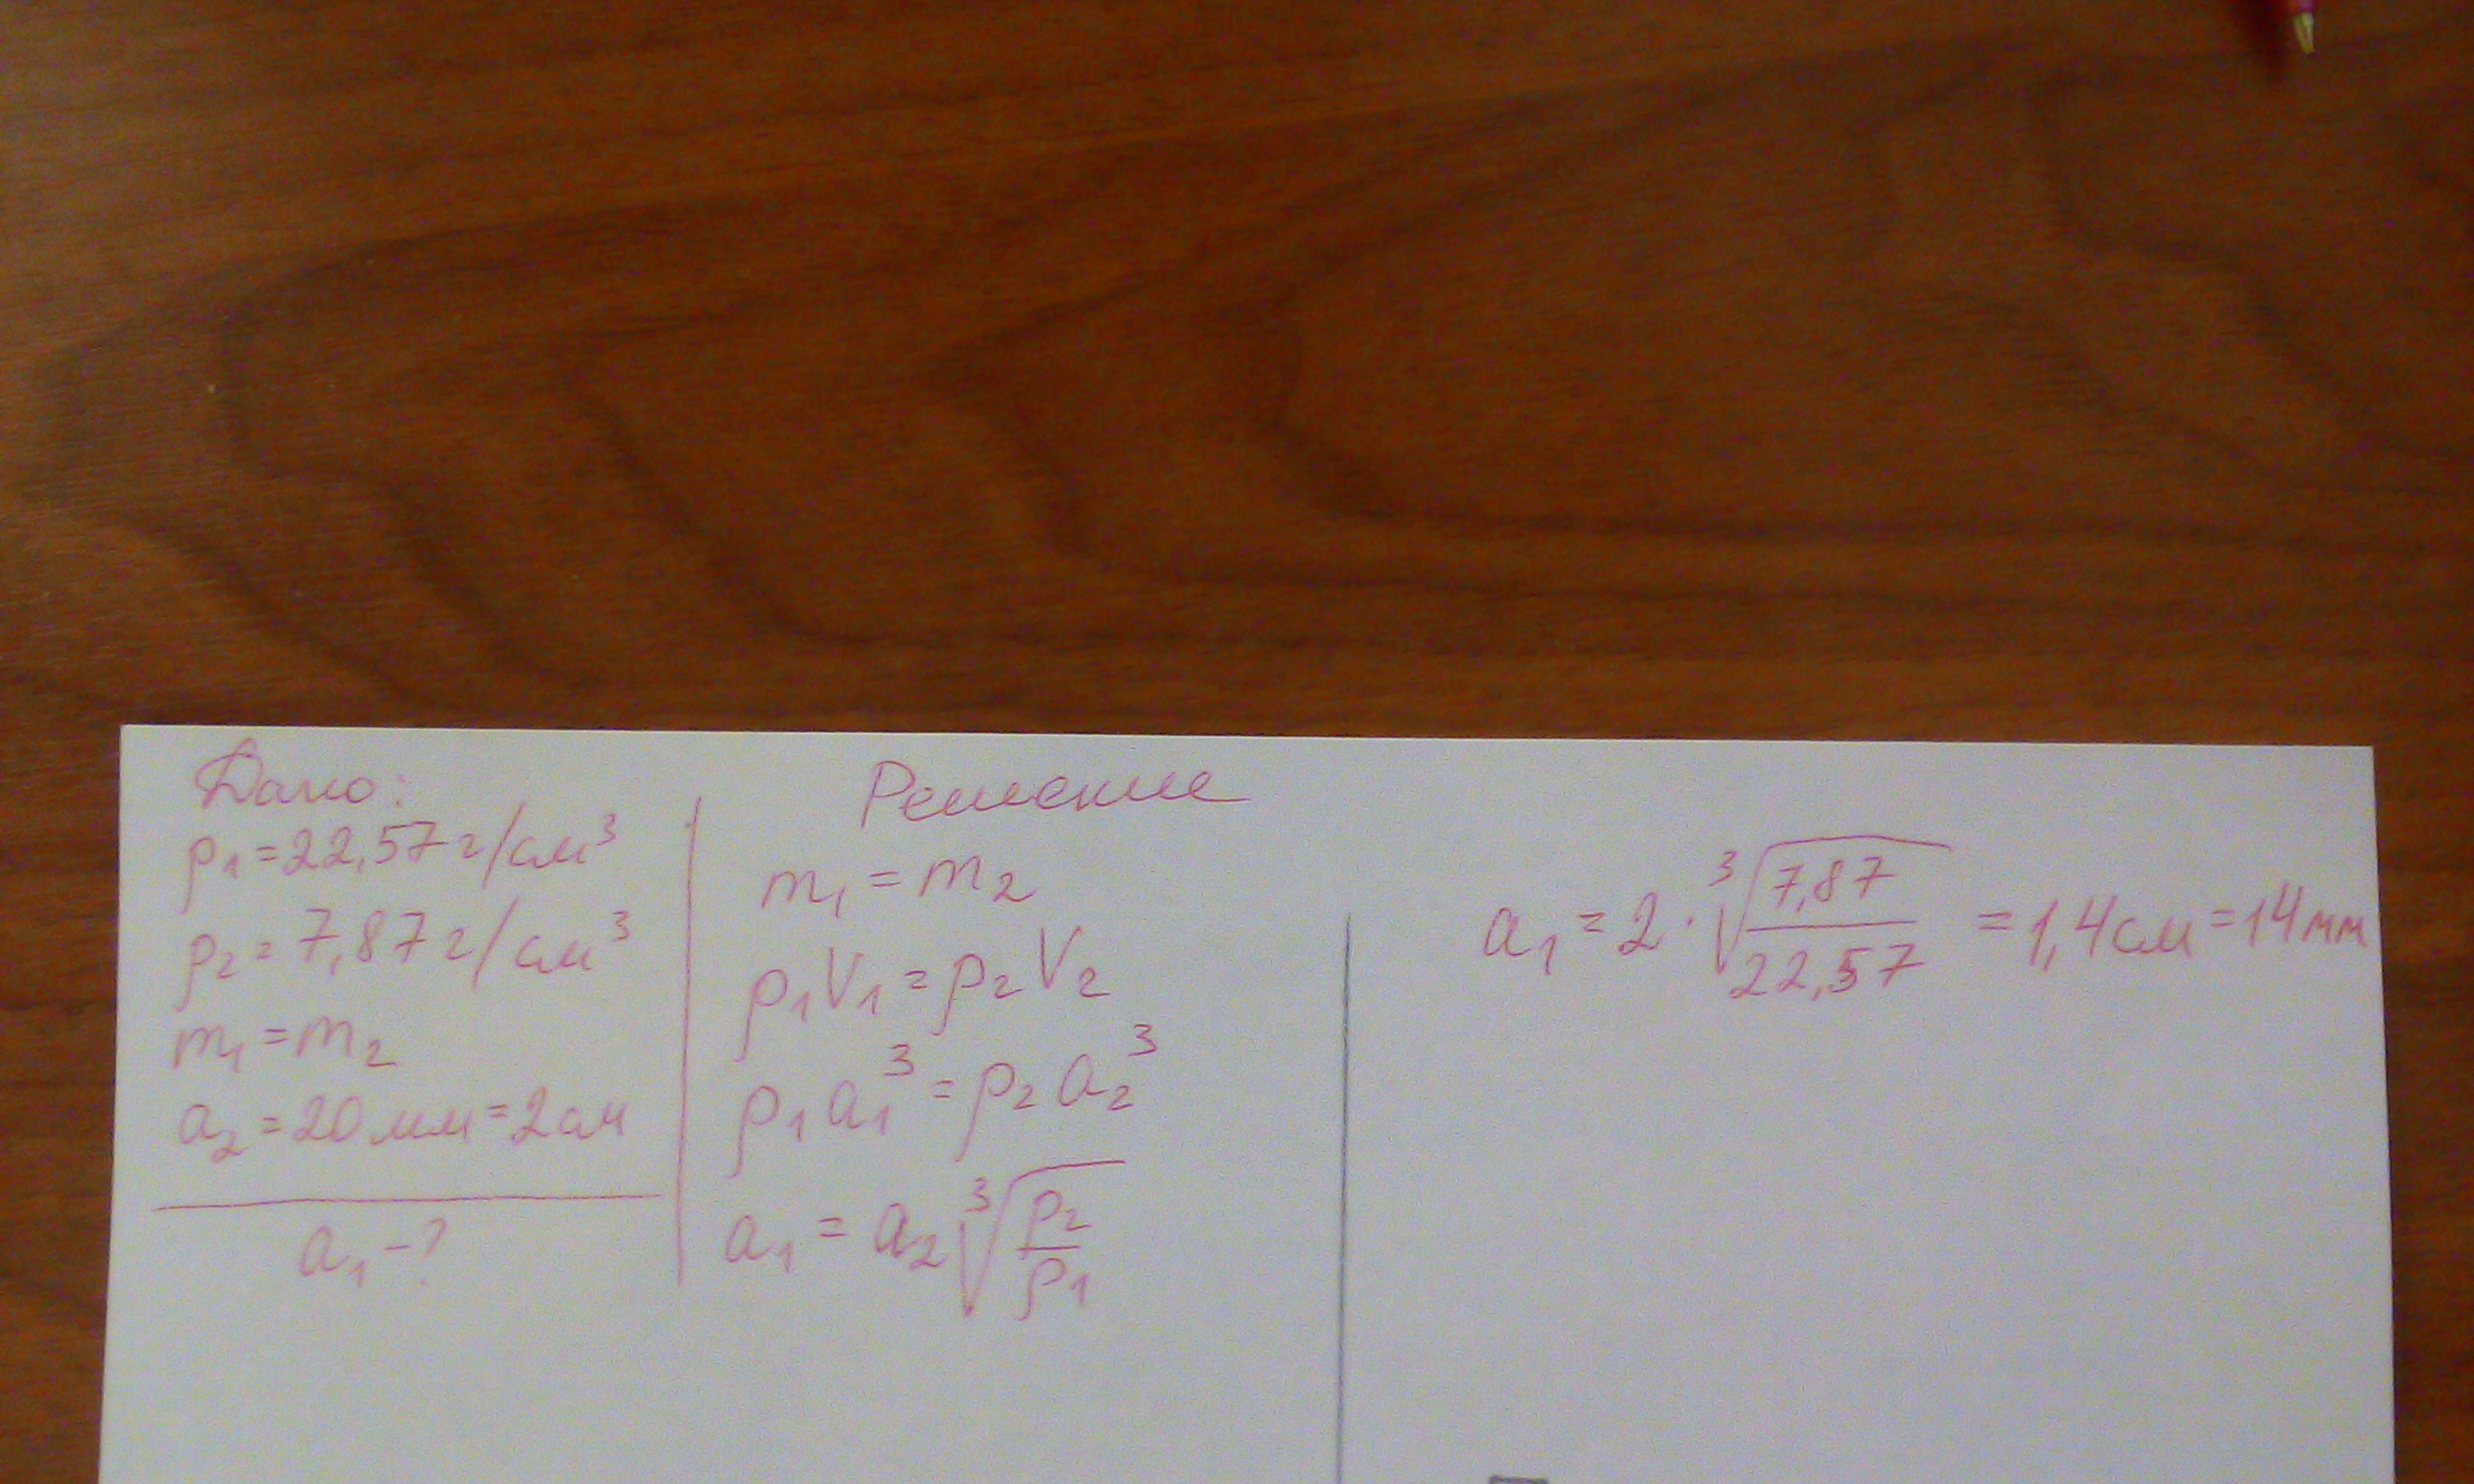 Дано:
ρ₁=22,57 г/см³
ρ₂=7,87 г/см³
m₁=m₂
a₂=20 мм=2 см
a₁-?
Решение
m₁=m₂
ρ₁V₁=ρ₂V₂
ρ₁a₁³=ρ₂a₂³
a₁=a₂∛(ρ₂/ρ₁)
a₁=2·∛(7,87/22,57)=1,4 см=14 мм